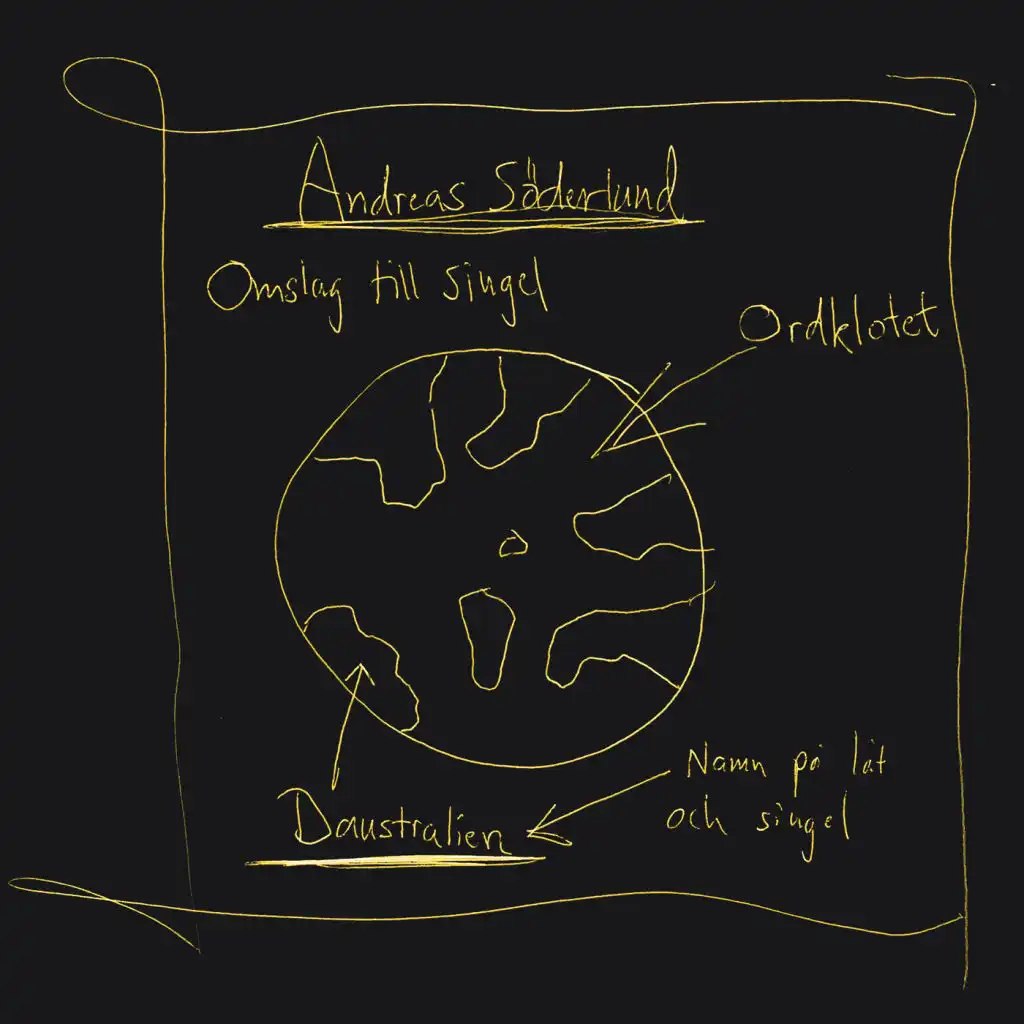 Andreas Söderlund
Omslag till singel
Ordklotet
Namn på låt
och singel
Daustralien